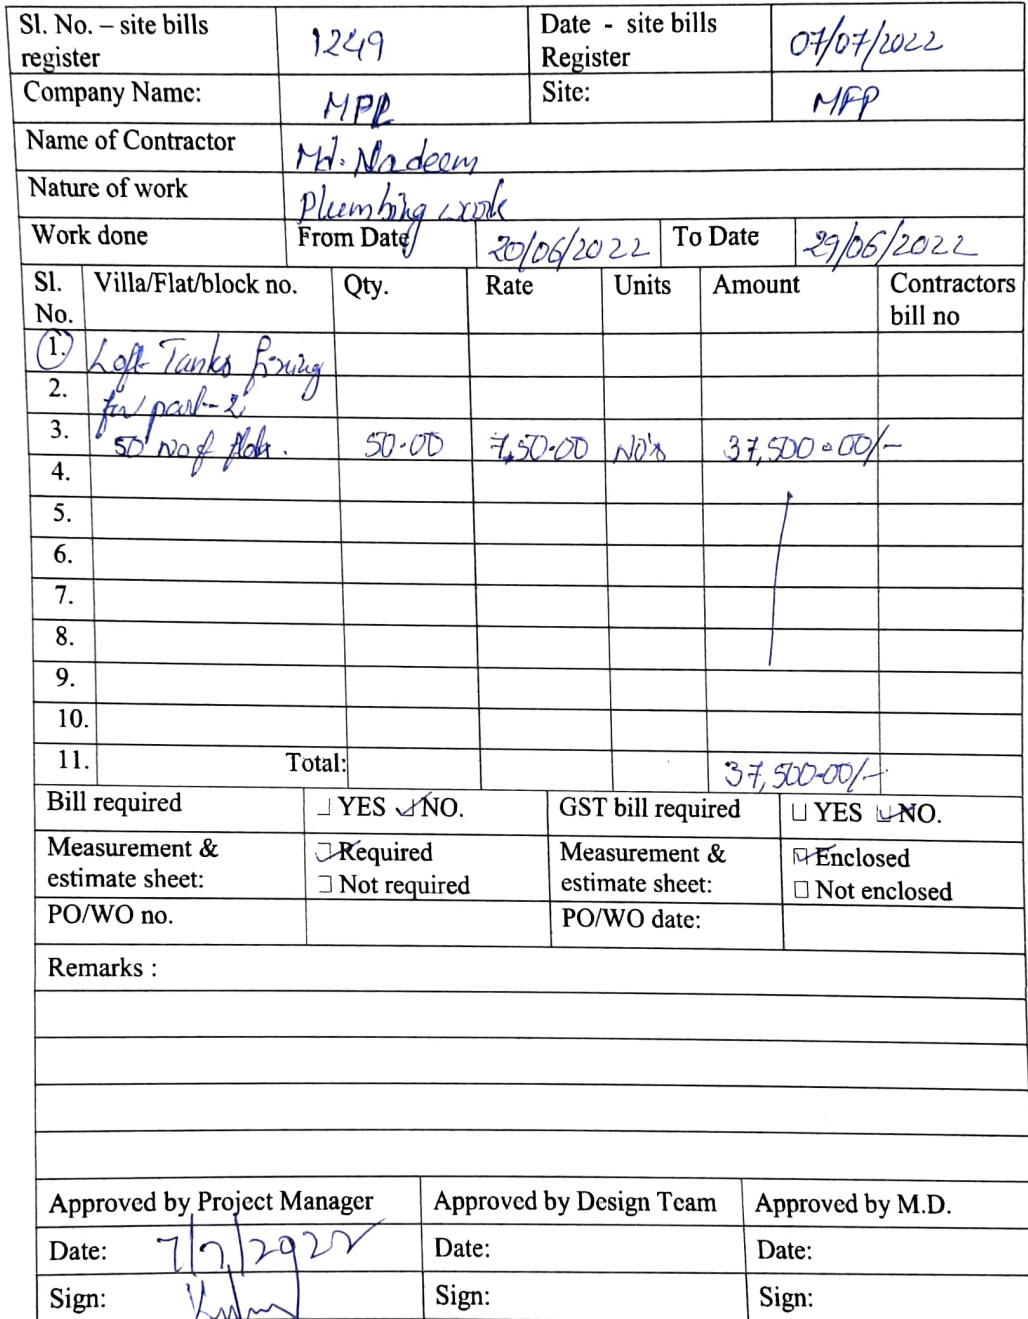 Sl. No. – site bills register 1249 Date - site bills Register 07/07/2022
Company Name: MPL Site: MFP
Name of Contractor Md. Nadeem
Nature of work Plumbing work
Work done From Date 20/06/2022 To Date 29/06/2022
Sl. No. Villa/Flat/block no. Qty. Rate Units Amount Contractors bill no
1. Loft Tanks fixing
2. for part-2,
3. 50 No of flats. 50-00 7,50-00 No's 37,500-00/-
4.
5.
6.
7.
8.
9.
10.
11. Total: 37,500-00/-
Bill required YES NO. GST bill required YES NO.
Measurement & estimate sheet: Required Not required Measurement & estimate sheet: Enclosed Not enclosed
PO/WO no. PO/WO date:
Remarks :
Approved by Project Manager Approved by Design Team Approved by M.D.
Date: 7/7/2022 Date: Date:
Sign: Sign: Sign: